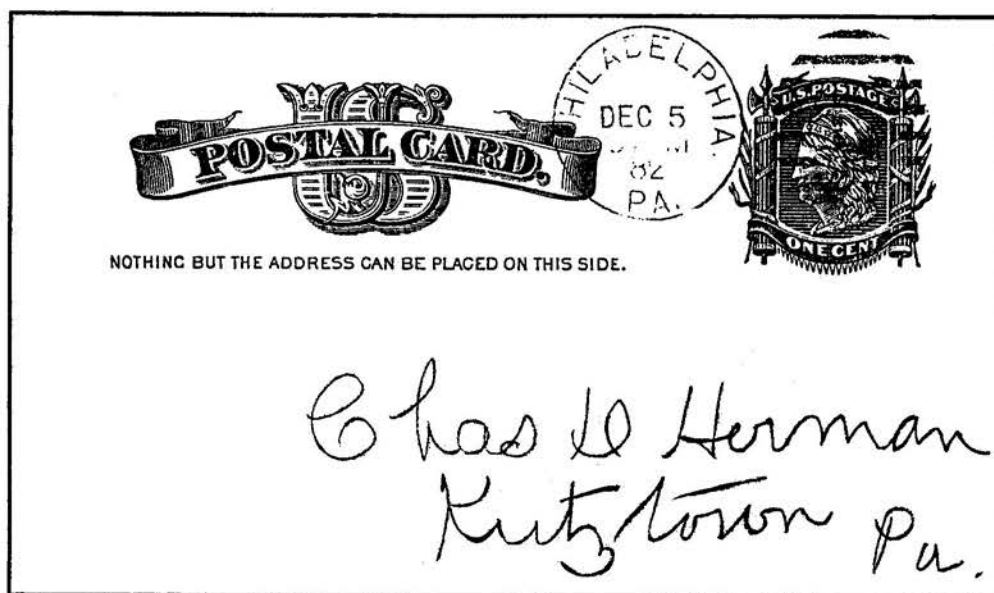 U.S. POSTAGE
PHILADELPHIA
DEC 5
82
PA.
US
POSTAL CARD.
ONE CENT
NOTHING BUT THE ADDRESS CAN BE PLACED ON THIS SIDE.
Chas D Herman
Kutztown Pa.